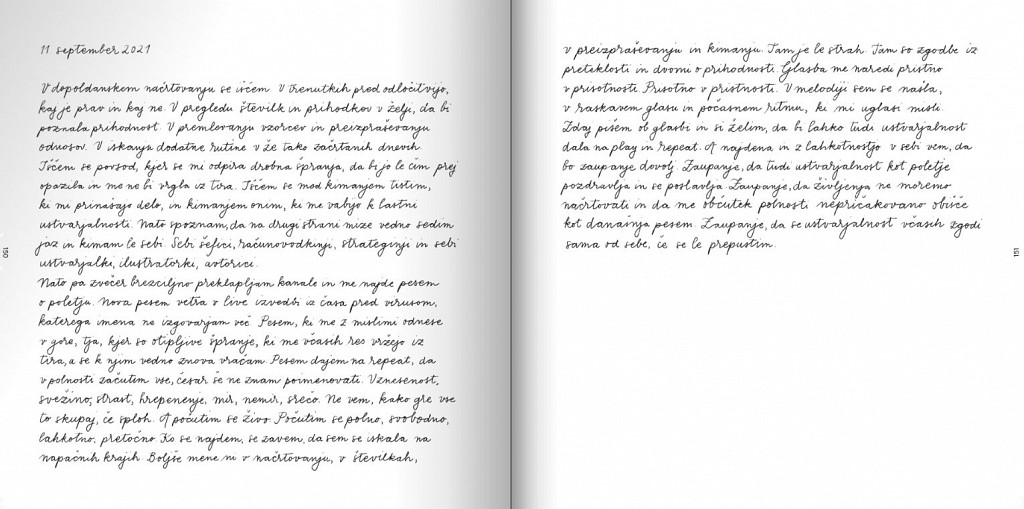 11 september 2021
V dopoldanskem načrtovanju se iščem. V trenutkih pred odločitvijo,
kaj je prav in kaj ne. V pregledu številk in prihodkov v želji, da bi
poznala prihodnost. V premlevanju vzorcev in preizpraševanju
odnosov. V iskanju dodatne rutine v že tako začrtanih dnevih.
Iščem se povsod, kjer se mi odpira drobna špranja, da bi jo le čim prej
opazila in me ne bi vrgla iz tira. Iščem se med kimanjem tistim,
ki mi prinašajo delo, in kimanjem onim, ki me vabijo k lastni
ustvarjalnosti. Nato spoznam, da na drugi strani mize vedno sedim
jaz in kimam le sebi. Sebi šefici, računovodkinji, strateginji in sebi
ustvarjalki, ilustratorki, avtorici.
Nato pa zvečer brezciljno preklapljam kanale in me najde pesem
o poletju. Nova pesem vetra v live izvedbi iz časa pred virusom,
katerega imena ne izgovarjam več. Pesem, ki me z mislimi odnese
v gore, tja, kjer so otipljive špranje, ki me včasih res vržejo iz
tira, a se k njim vedno znova vračam. Pesem dajem na repeat, da
v polnosti začutim vse, česar še ne znam poimenovati. Vznesenost,
svežino, strast, hrepenenje, mir, nemir, srečo. Ne vem, kako gre vse
to skupaj, če sploh. A počutim se živo. Počutim se polno, svobodno,
lahkotno, pretočno. Ko se najdem, se zavem, da sem se iskala na
napačnih krajih. Boljše mene ni v načrtovanju, v številkah,
150
v preizpraševanju in kimanju. Tam je le strah. Tam so zgodbe iz
preteklosti in dvomi o prihodnosti. Glasba me naredi pristno
v prisotnosti. Prisotno v pristnosti. V melodiji sem se našla,
v raskavem glasu in počasnem ritmu, ki mi uglasi misli.
Zdaj pišem ob glasbi in si želim, da bi lahko tudi ustvarjalnost
dala na play in repeat. A najdena in z lahkotnostjo v sebi vem, da
bo zaupanje dovolj. Zaupanje, da tudi ustvarjalnost kot poletje
pozdravlja in se poslavlja. Zaupanje, da življenja ne moremo
načrtovati in da me občutek polnosti nepričakovano obišče
kot današnja pesem. Zaupanje, da se ustvarjalnost včasih zgodi
sama od sebe, če se le prepustim.
151